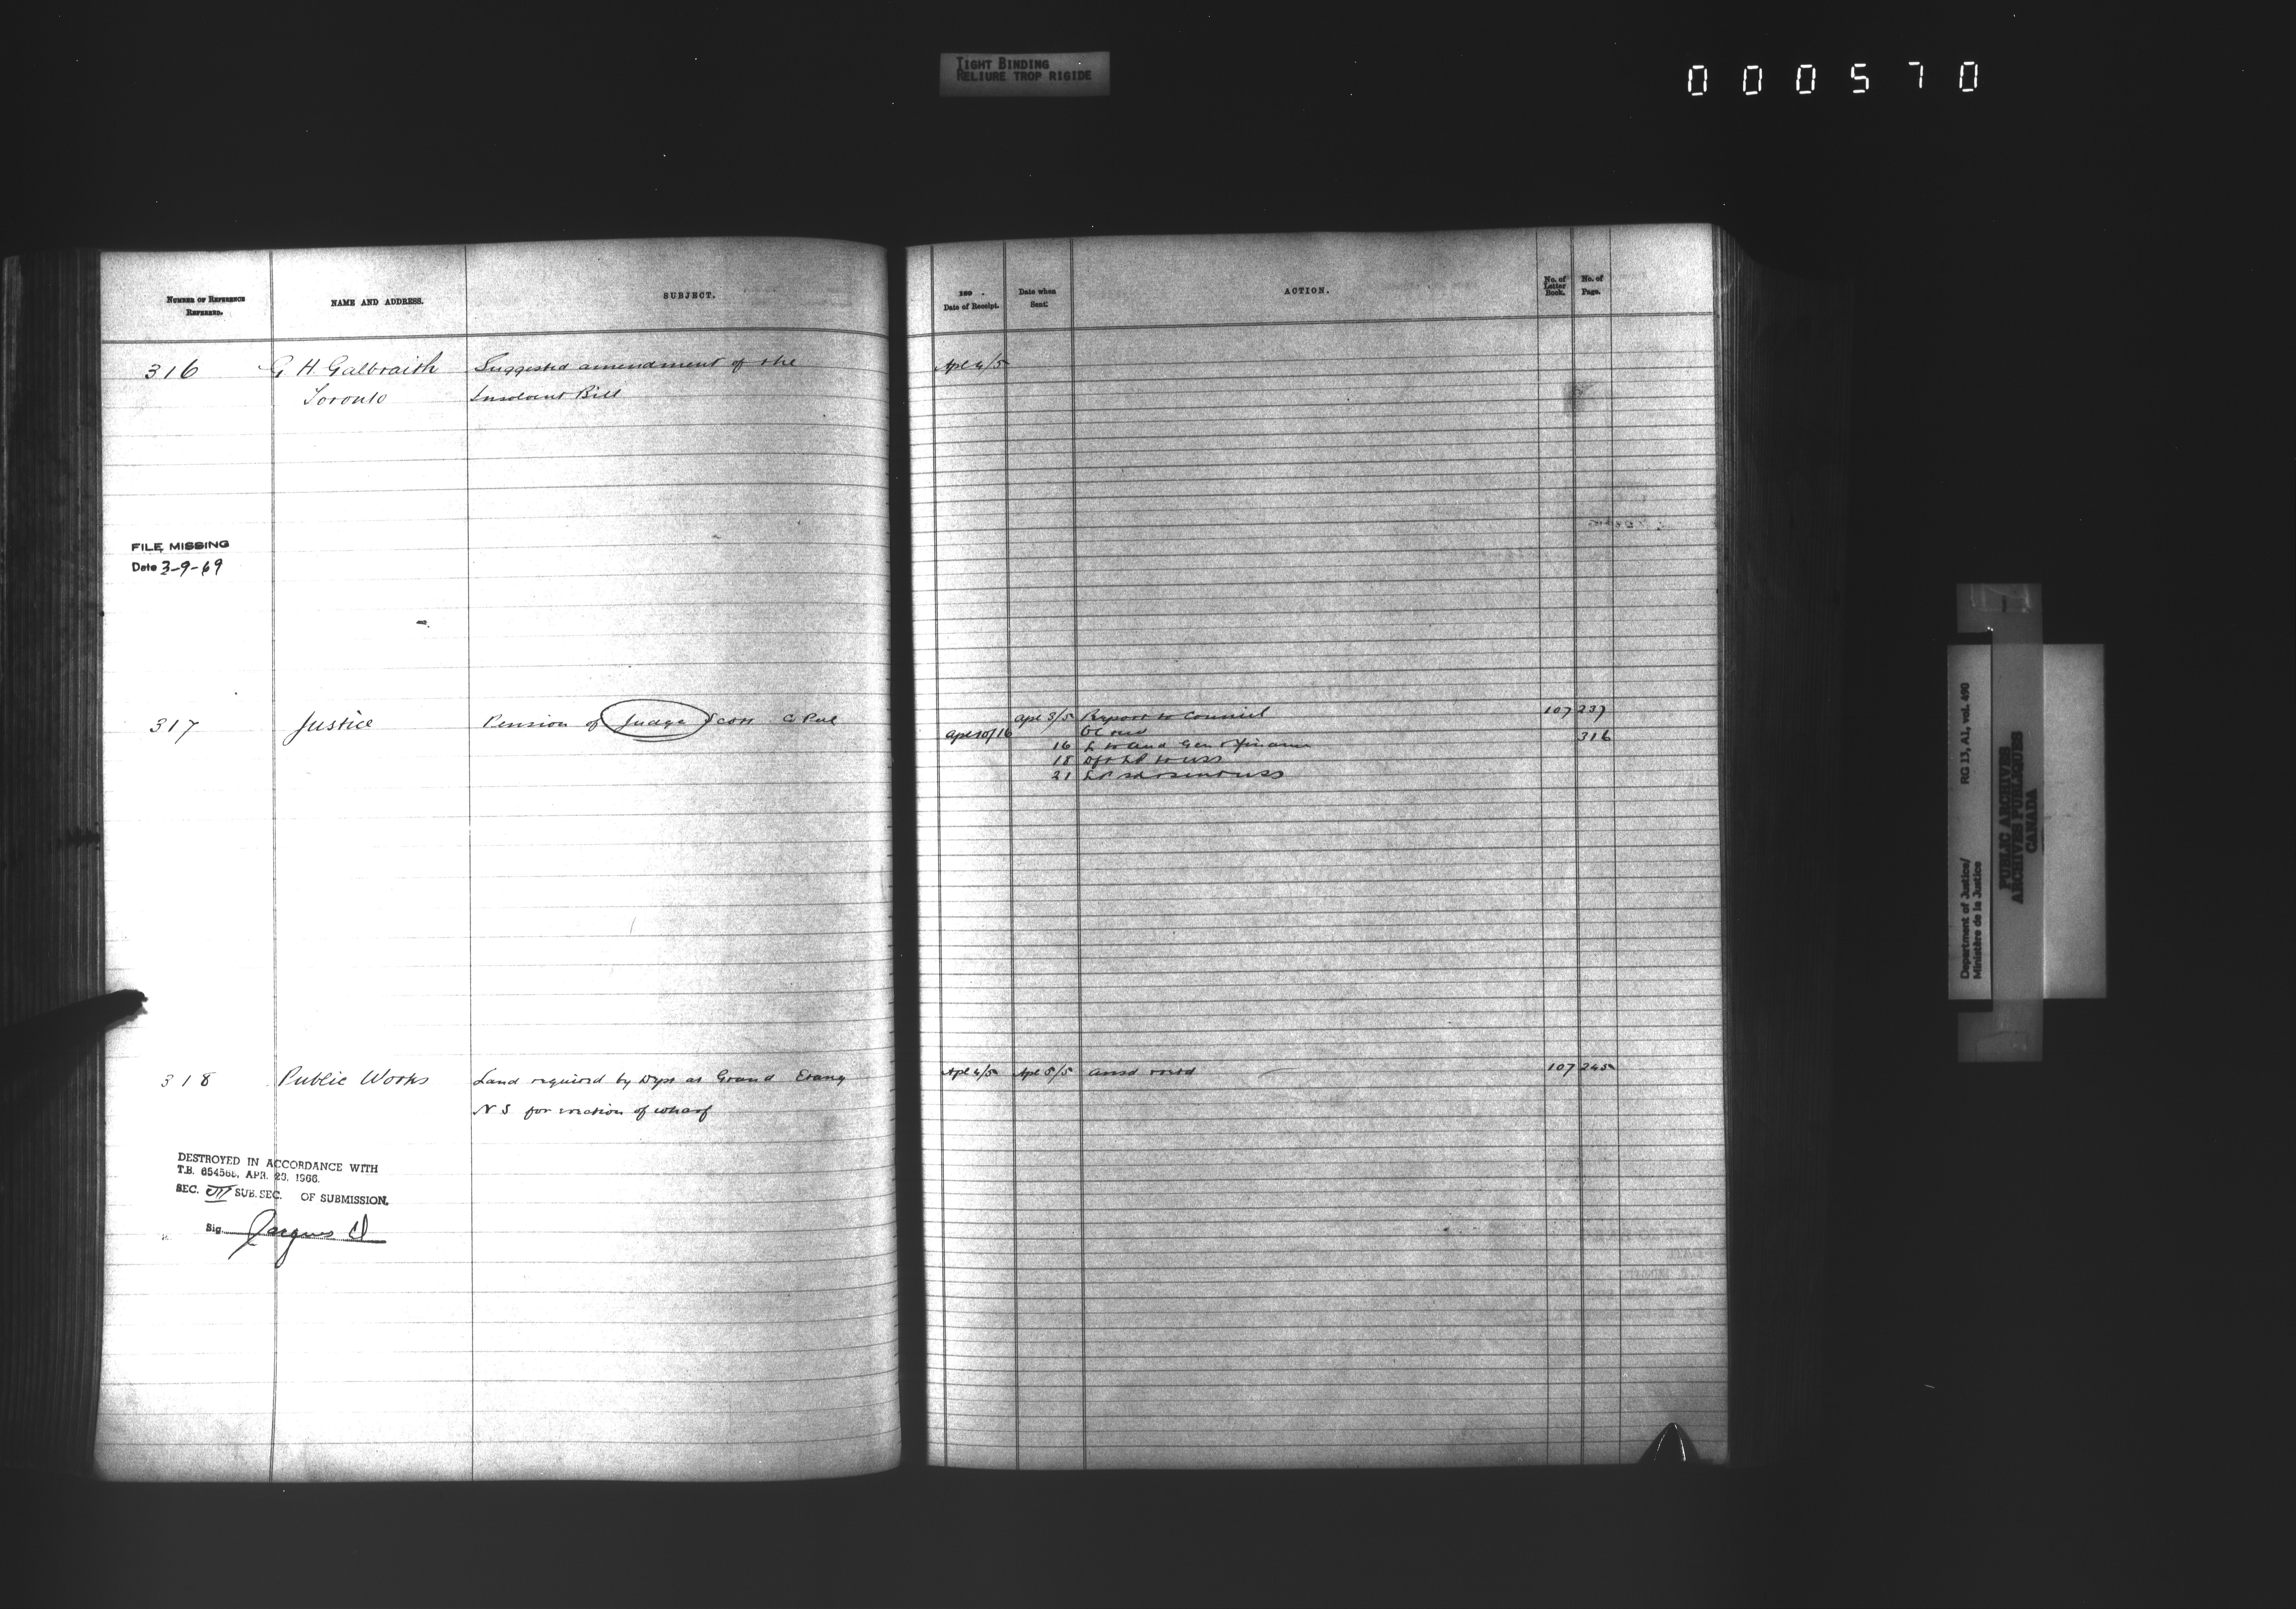 TIGHT BINDING
RELIURE TROP RIGIDE
000570
NUMBER OF REFERENCE
REFERRED.
NAME AND ADDRESS.
SUBJECT.
189 .
Date of Receipt.
Date when
Sent.
ACTION.
No. of
Letter
Book.
No. of
Page.
316 G H Galbraith Suggested amendment of the Apl 4/5
Toronto Insolvent Bill
FILE MISSING
Date 3-9-69
317 Justice Pension of Judge Scott C Peel Apl 3/5 Report to Council 107 237
Apl 10/16 OC 316
16
18
21
318 Public Works Land required by Dept at Grand Etang Apl 4/5 Apl 5/5 ansd 107 245
N S for erection of wharf
DESTROYED IN ACCORDANCE WITH
T.B. APR. 23, 1966.
SEC. III SUB. SEC. OF SUBMISSION.
Sig.
Department of Justice/ RG 13, A1, vol. 490
Ministère de la Justice
PUBLIC ARCHIVES
ARCHIVES PUBLIQUES
CANADA